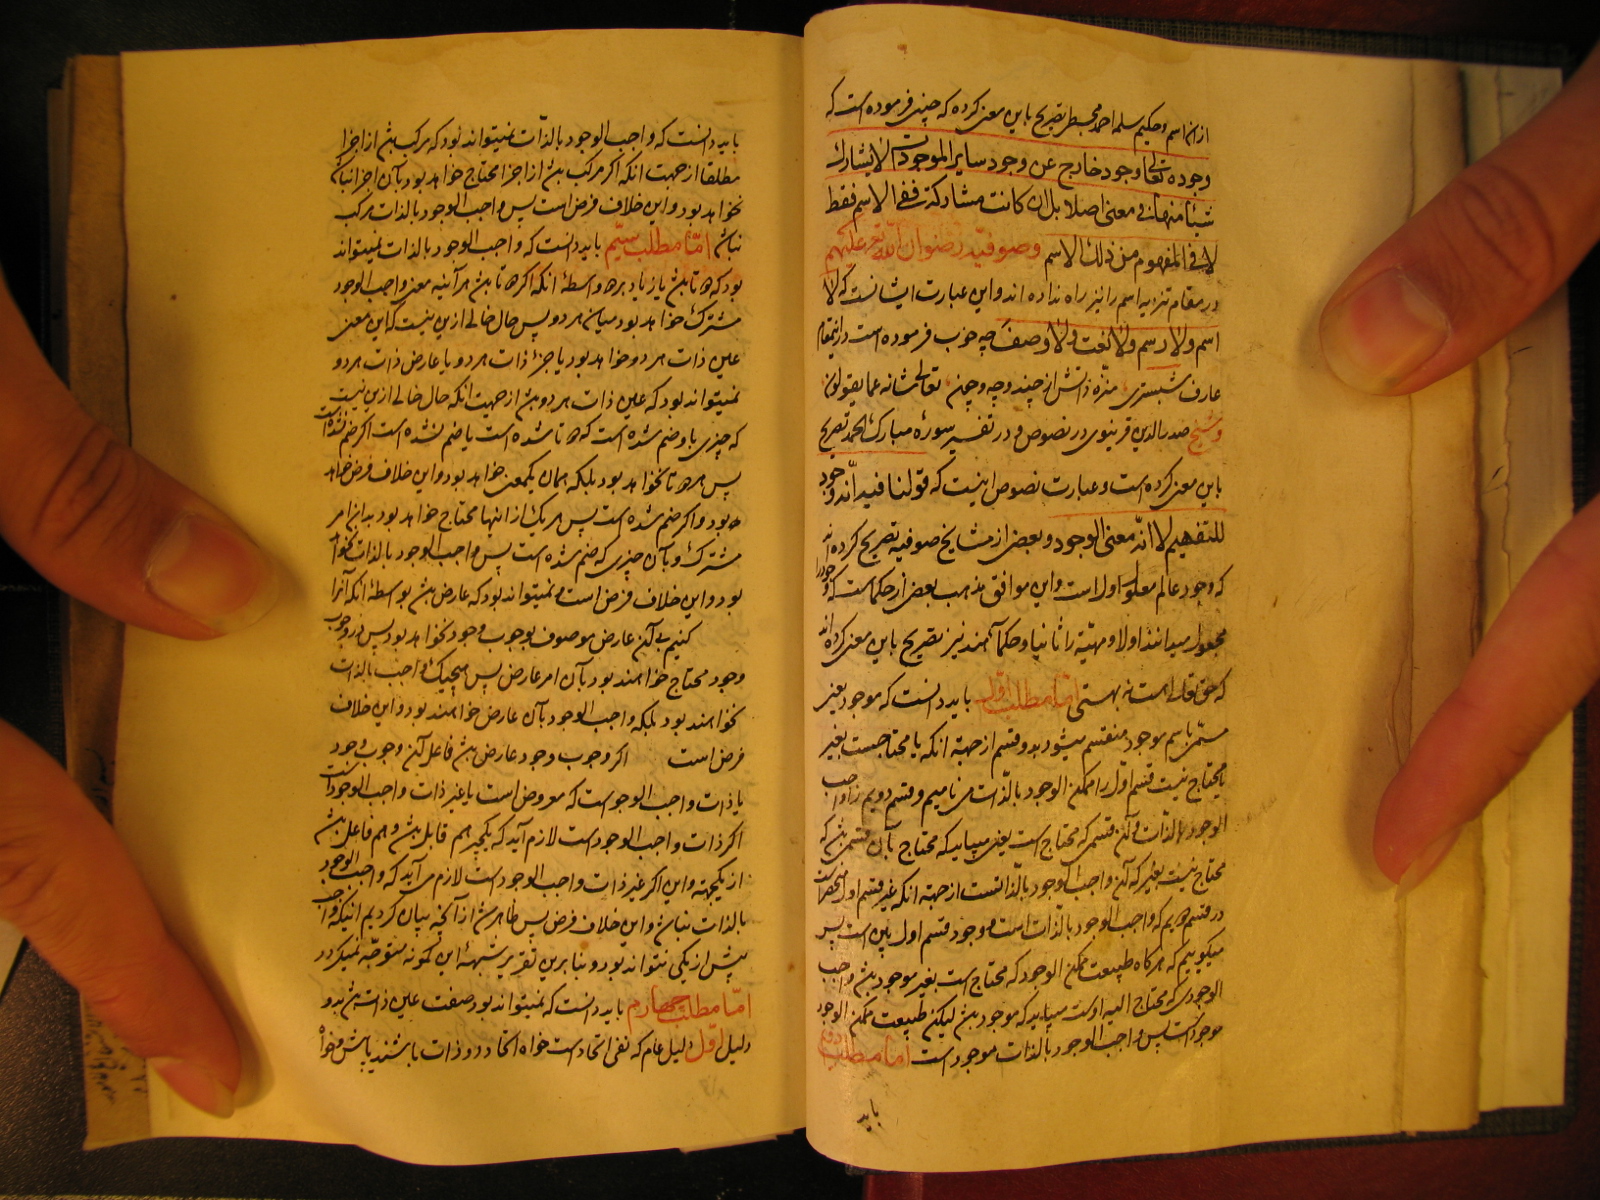 ازین اسم و حکیم مسلمه احمد مجریطی تصریح باین معنی کرده که چنین فرموده است که
وجوده تعالی وجود خارج عن وجود سایر الموجودات لا یشارک
شیئا منها فی معنی اصلا بل ان کانت مشارکة ففی الاسم فقط
لا فی المفهوم من ذلک الاسم و صوفیه رضوان الله علیهم
در مقام تنزیه اسم را نیز راه نداده اند و این عبارت ایشانست که لا
اسم و لا رسم و لا نعت و لا وصف چه خوب فرموده است درینمقام
عارف شبستری منزه ذاتش از چند و چه و چون تعالی شانه عما یقولون
و شیخ صدرالدین قونیوی در نصوص و در تفسیر سوره مبارک الحمد تصریح
باین معنی کرده است و عبارت نصوص اینست که قولنا فیه انه وجود
للتفهیم لا انه معنی الوجود و بعضی از مشایخ صوفیه تصریح کرده اند
که وجود عالم معلول اول است و این موافق مذهب بعضی از حکما است که وجود را
مجعول میدانند اولا و مهیة را ثانیا و حکماء هند نیز تصریح باین معنی کرده اند
که حق تعالی هست نه بهستی اما مطلب اول باید دانست که موجود یعنی
مسمی باسم موجود منقسم میشود بدو قسم از جهة انکه یا محتاجست بغیر
یا محتاج نیست قسم اول را ممکن الوجود بالذات می نامیم و قسم دویم را واجب
الوجود بالذات و آن قسمی که محتاج است بغیر میباید که محتاج بآن قسمی باشد که
محتاج نیست بغیر که آن واجب الوجود بالذاتست از جهة انکه غیر قسم اول منحصرست
در قسم دویم که واجب الوجود بالذات است و وجود قسم اول بین است پس
میگوییم که هرگاه طبیعت ممکن الوجود که محتاج است بغیر موجود باشد واجب
الوجودی که محتاج الیه اوست میباید که موجود باشد لیکن طبیعت ممکن الوجود
موجود است پس واجب الوجود بالذات موجود است اما مطلب دویم
باید
باید دانست که واجب الوجود بالذات نمیتواند بود که مرکب باشد از اجزا
مطلقا از جهت انکه اگر مرکب باشد از اجزا محتاج خواهد بود بآن اجزا نباشد
نخواهد بود و این خلاف فرض است پس واجب الوجود بالذات مرکب
نباشد اما مطلب سیم باید دانست که واجب الوجود بالذات نمیتواند
بود که دو تا باشد یا زیاد بر دو واسطهٔ انکه اگر دو تا باشد هر آئینه معنی واجب الوجود
مشترک خواهد بود میانه هر دو پس حال خالی ازین نیست که این معنی
عین ذات هر دو خواهد بود یا جزء ذات هر دو یا عارض ذات هر دو
نمیتواند بود که عین ذات هر دو باشد از جهت انکه حال خالی ازین نیست
که چیزی با او ضم شده است که دو تا شده است یا ضم نشده است اگر ضم نشده است
پس هر دو تا نخواهد بود بلکه همان یکمعنی خواهد بود و این خلاف فرض خواهد
بود و اگر ضم شده است پس هر یک از اینها محتاج خواهد بود بدان امر
مشترک و بآن چیزی که ضم شده است پس واجب الوجود بالذات نخواهد
بود و این خلاف فرض است و نمیتواند بود که عارض باشد بواسطهٔ انکه آنرا
کنیم بی آن عارض موصوف بوجوب وجود نخواهد بود پس در وجوب
وجود محتاج خواهند بود بآن امر عارض پس هیچیک واجب بالذات
نخواهند بود بلکه واجب الوجود بآن عارض خواهند بود و این خلاف
فرض است اگر وجوب وجود عارض باشد فاعل آن وجوب وجود
یا ذات واجب الوجود است که معروض است یا غیر ذات واجب الوجود است
اگر ذات واجب الوجود است لازم آید که یکچیز هم قابل باشد و هم فاعل باشد
از یکجهة و این اگر غیر ذات واجب الوجود است لازم می آید که واجب الوجود
بالذات نباشد و این خلاف فرض پس ظاهر شد از آنچه بیان کردیم اینکه واجب
بیش از یکی نتواند بود و بنا برین تقریر شبههٔ ابن کمونه متوجه نمیگردد
اما مطلب چهارم باید دانست که نمیتواند بود صفت عین ذات باشد بدو
دلیل اول دلیل عام که نفی اتحاد است خواه اتحاد دو ذات باشند یا باشد و خواه